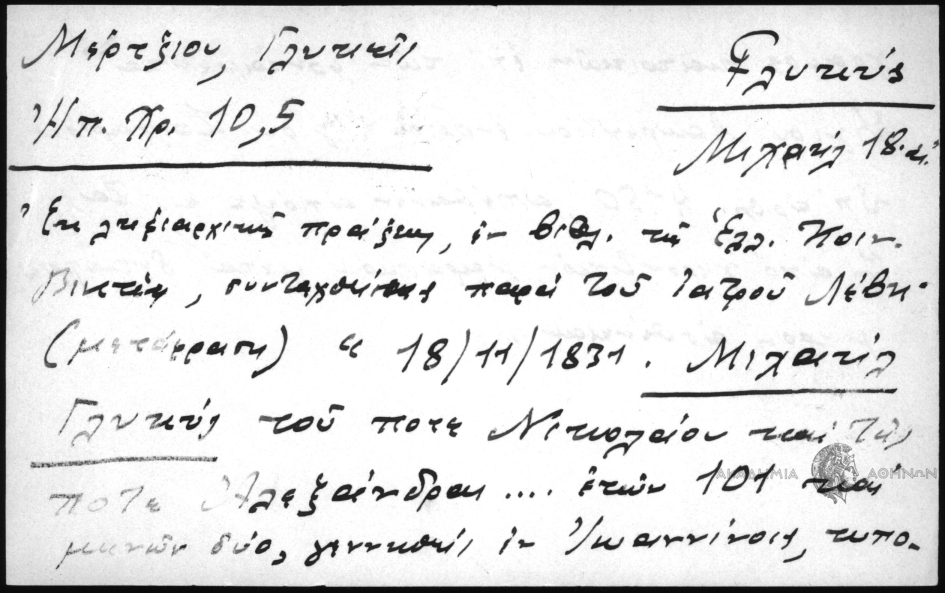 Μέρτζιου, Γλυκείς
Ἠπ. Χρ. 10,5
Γλυκύς
Μιχαήλ 18. αἰ.
Ἐκ ληξιαρχικῆς πράξεως, ἐν βιβλ. τῆς Ἑλλ. Κοιν.
Βενετίας, συνταχθείσης παρά τοῦ ἰατροῦ Λέβη.
(μετάφρασις) " 18/11/1831. Μιχαήλ
Γλυκύς τοῦ ποτε Νικολάου καί τῆς
ποτε Ἀλεξάνδρας .... ἐτῶν 101 καί
μηνῶν δύο, γεννηθείς ἐν Ἰωαννίνοις, τυπο-
ΑΚΑΔΗΜΙΑ ΑΘΗΝΩΝ